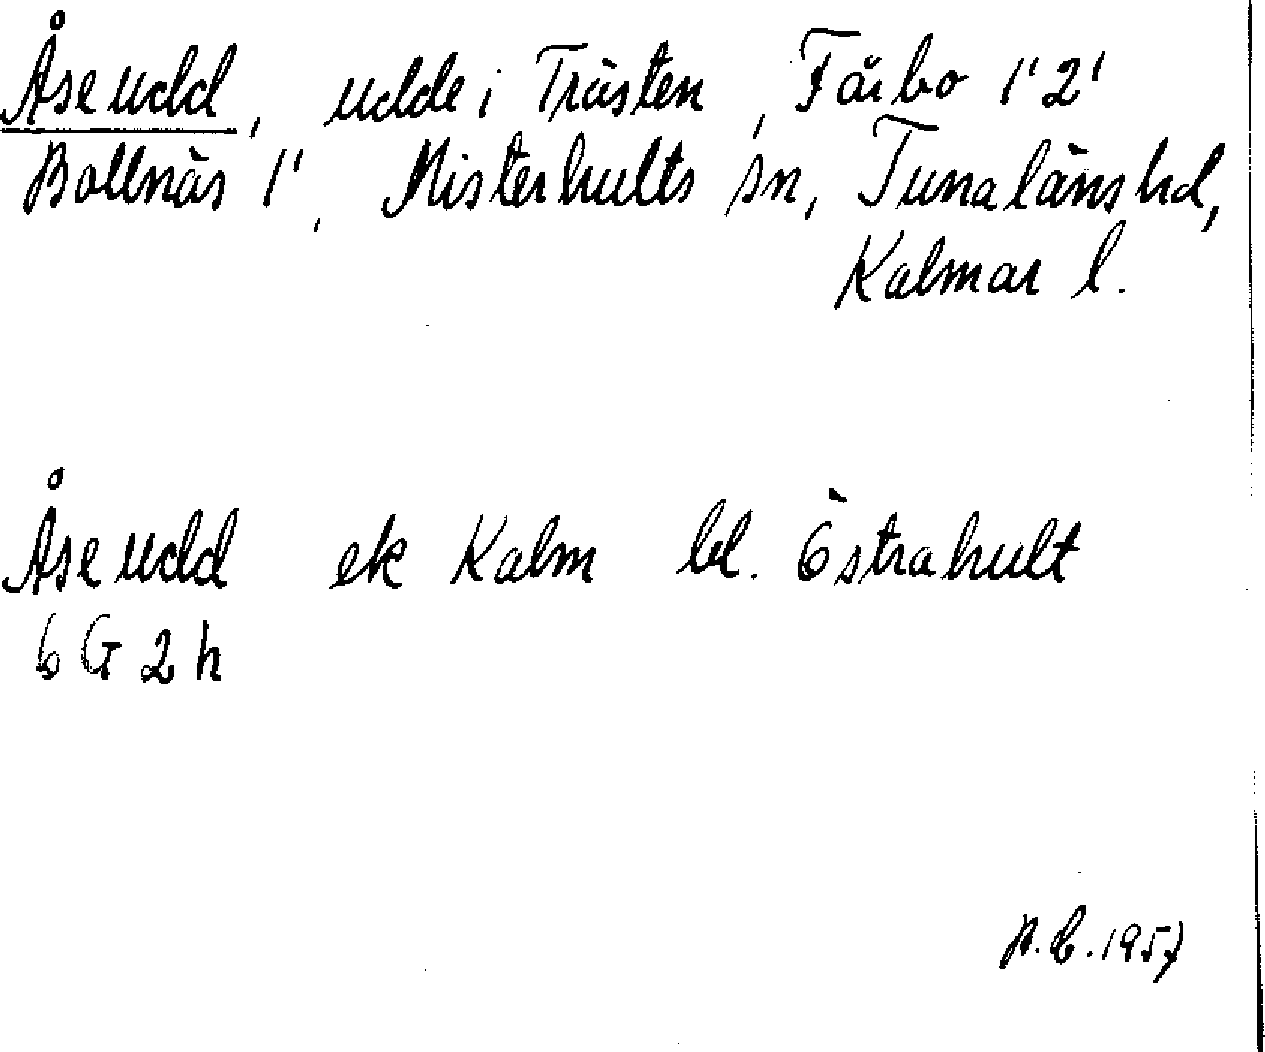 Åse udd, udde i Trästen, Fårbo 1¹2¹
Bollnäs 1¹, Misterhults sn, Tunaläns hd,
Kalmar l.
Åse udd ek Kalm bl. Östrahult
6 G 2 h
1957